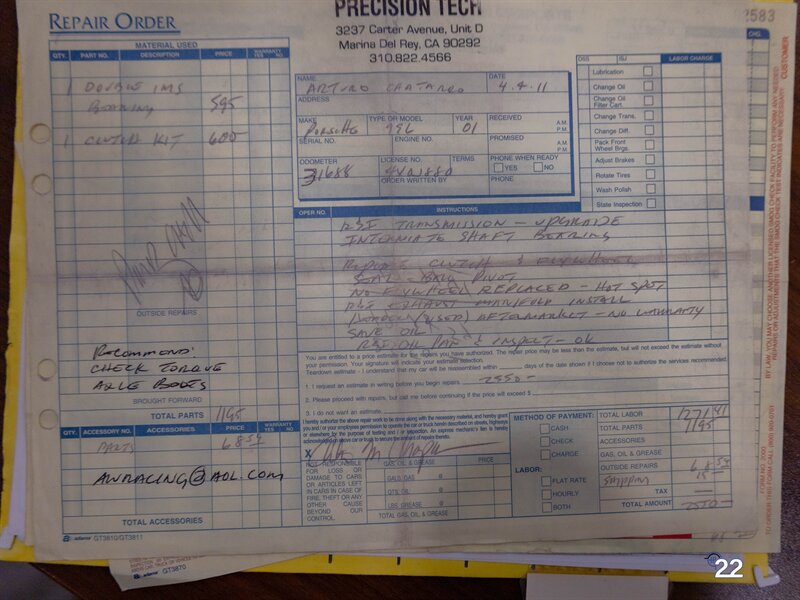 REPAIR ORDER
PRECISION TECH
3237 Carter Avenue, Unit D
Marina Del Rey, CA 90292
310.822.4566
2583
MATERIAL USED
QTY. PART NO. DESCRIPTION PRICE WARRANTY YES NO
1 DOUBLE IMS
BEARING 595
1 CLUTCH KIT 600
OUTSIDE REPAIRS
RECOMMEND:
CHECK TORQUE
AXLE BOOTS
BROUGHT FORWARD
TOTAL PARTS 1195
QTY. ACCESSORY NO. ACCESSORIES PRICE WARRANTY YES NO
PARTS 68.54
AWRACING@AOL.COM
TOTAL ACCESSORIES
adams GT3810/GT3811
adams GT3870
NAME ARTURO DATE 4.4.11
ADDRESS
MAKE PORSCHE TYPE OR MODEL 996 YEAR 01 RECEIVED A.M. P.M.
SERIAL NO. ENGINE NO. PROMISED A.M. P.M.
ODOMETER 31688 LICENSE NO. TERMS PHONE WHEN READY YES NO
ORDER WRITTEN BY PHONE
LABOR CHARGE
Lubrication
Change Oil
Change Oil Filter Cart.
Change Trans.
Change Diff.
Pack Front Wheel Brgs.
Adjust Brakes
Rotate Tires
Wash Polish
State Inspection
OPER NO. INSTRUCTIONS
R&I TRANSMISSION - UPGRADE
INTERMIATE SHAFT BEARING
REPLACE CLUTCH & FLYWHEEL
SEAL - BALL PIVOT
NO FLYWHEEL REPLACED - HOT SPOT
R&I EXHAUST MANIFOLD INSTALL
(USED) AFTERMARKET - NO WARRANTY
SAVE OIL
R&I OIL PAN & INSPECT - OK
You are entitled to a price estimate for the repairs you have authorized. The repair price may be less than the estimate, but will not exceed the estimate without
your permission. Your signature will indicate your estimate selection.
Teardown estimate: I understand that my car will be reassembled within days of the date shown if I choose not to authorize the services recommended
1. I request an estimate in writing before you begin repairs. 2550-
2. Please proceed with repairs, but call me before continuing if the price will exceed $
3. I do not want an estimate.
I hereby authorize the above repair work to be done along with the necessary material, and hereby grant
you and/or your employees permission to operate the car or truck herein described on streets, highways
or elsewhere for the purpose of testing and / or inspection. An express mechanic's lien is hereby
acknowledged on above car or truck to secure the amount of repairs thereto.
X
NOT RESPONSIBLE FOR LOSS OR DAMAGE TO CARS OR ARTICLES LEFT IN CARS IN CASE OF FIRE, THEFT OR ANY OTHER CAUSE BEYOND OUR CONTROL.
GAS, OIL & GREASE PRICE
GALS. GAS @
QTS. OIL @
LBS. GREASE @
TOTAL GAS, OIL & GREASE
METHOD OF PAYMENT:
CASH
CHECK
CHARGE
LABOR:
FLAT RATE
HOURLY
BOTH
TOTAL LABOR 1271.41
TOTAL PARTS 1195
ACCESSORIES
GAS, OIL & GREASE
OUTSIDE REPAIRS 68.54
SHIPPING 15
TAX
TOTAL AMOUNT 2550
BY LAW, YOU MAY CHOOSE ANOTHER LICENSED SMOG CHECK FACILITY TO PERFORM ANY NEEDED
REPAIRS OR ADJUSTMENTS THAT THE SMOG CHECK TEST INDICATES ARE NECESSARY.
CUSTOMER
22